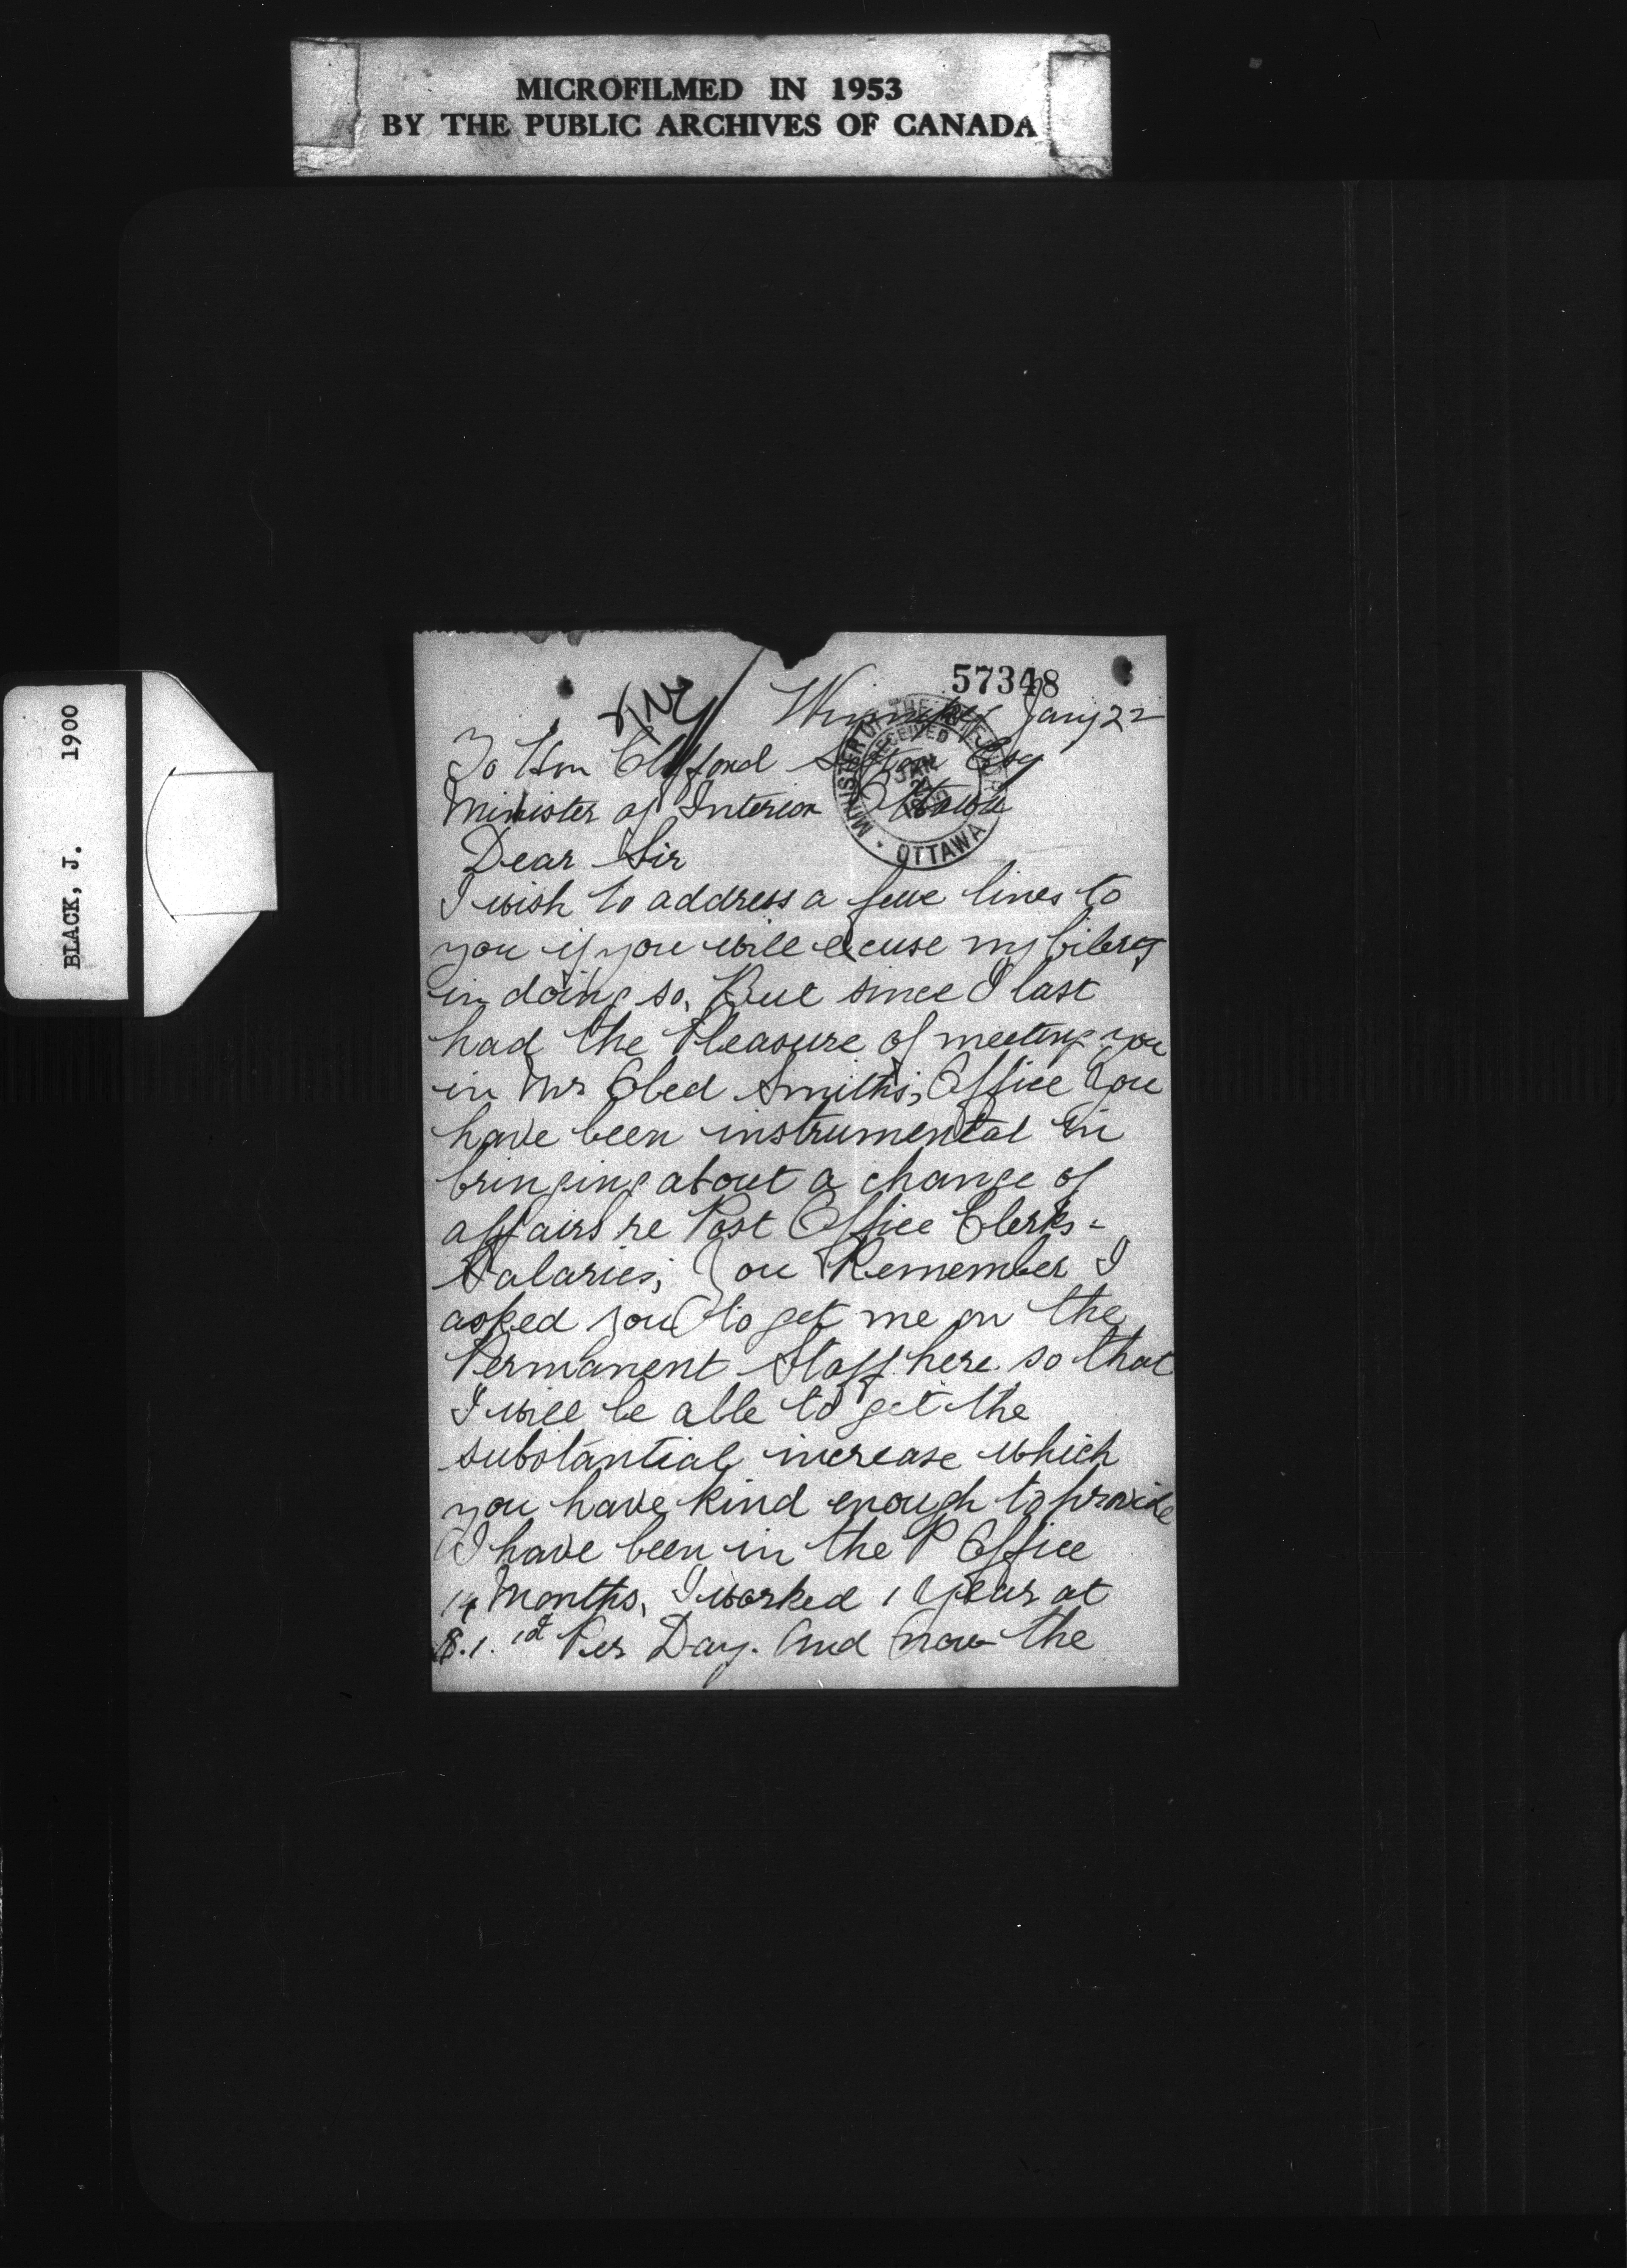 MICROFILMED IN 1953
BY THE PUBLIC ARCHIVES OF CANADA
BLACK, J. 1900
57348
Winnipeg Jany 22
To Hon Clifford Sifton Esq
Minister of Interior Ottawa
MINISTER OF THE INTERIOR
RECEIVED
JAN
OTTAWA
Dear Sir
I wish to address a few lines to
you if you will excuse my liberty
in doing so. But since I last
had the Pleasure of meeting you
in Mr Obed Smith's, Office You
have been instrumental in
bringing about a change of
affairs re Post Office Clerks -
Salaries; You Remember I
asked you to get me on the
Permanent Staff here. so that
I will be able to get the
substantial increase which
you have kind enough to provide
I have been in the P Office
14 Months, I worked 1 year at
Per Day. And now the